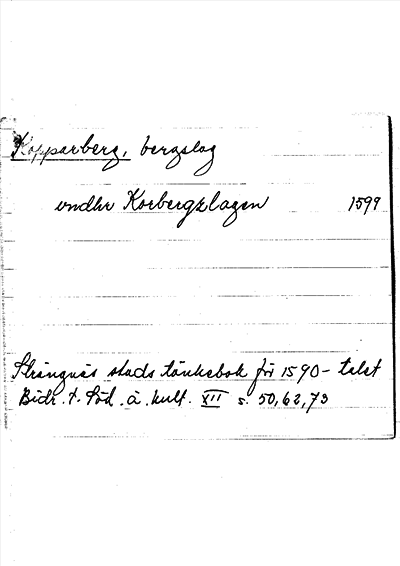 Kopparberg, bergslag
undhr Korbergzlagen 1599
Strängnäs stads tänkebok för 1590-talet
Bidr. t. Söd. ä. kult. XII s. 50, 62, 73